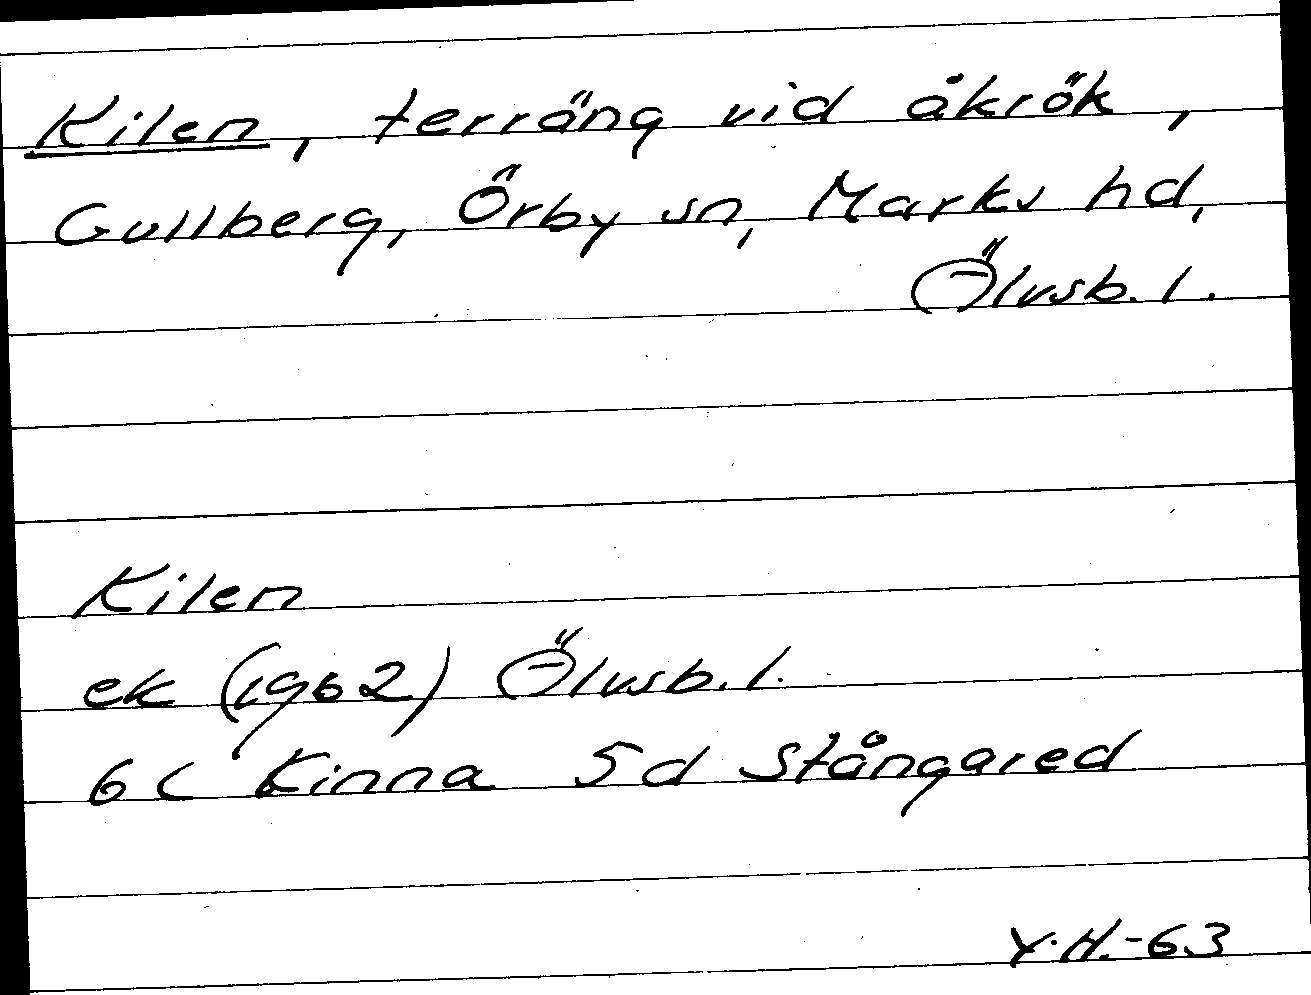 Kilen, terräng vid åkrök,
Gullberg, Örby sn, Marks hd,
Älvsb. l.
Kilen
ek (1962) Älvsb. l.
6 C Kinna 5 d Stångared
Y.H.-63